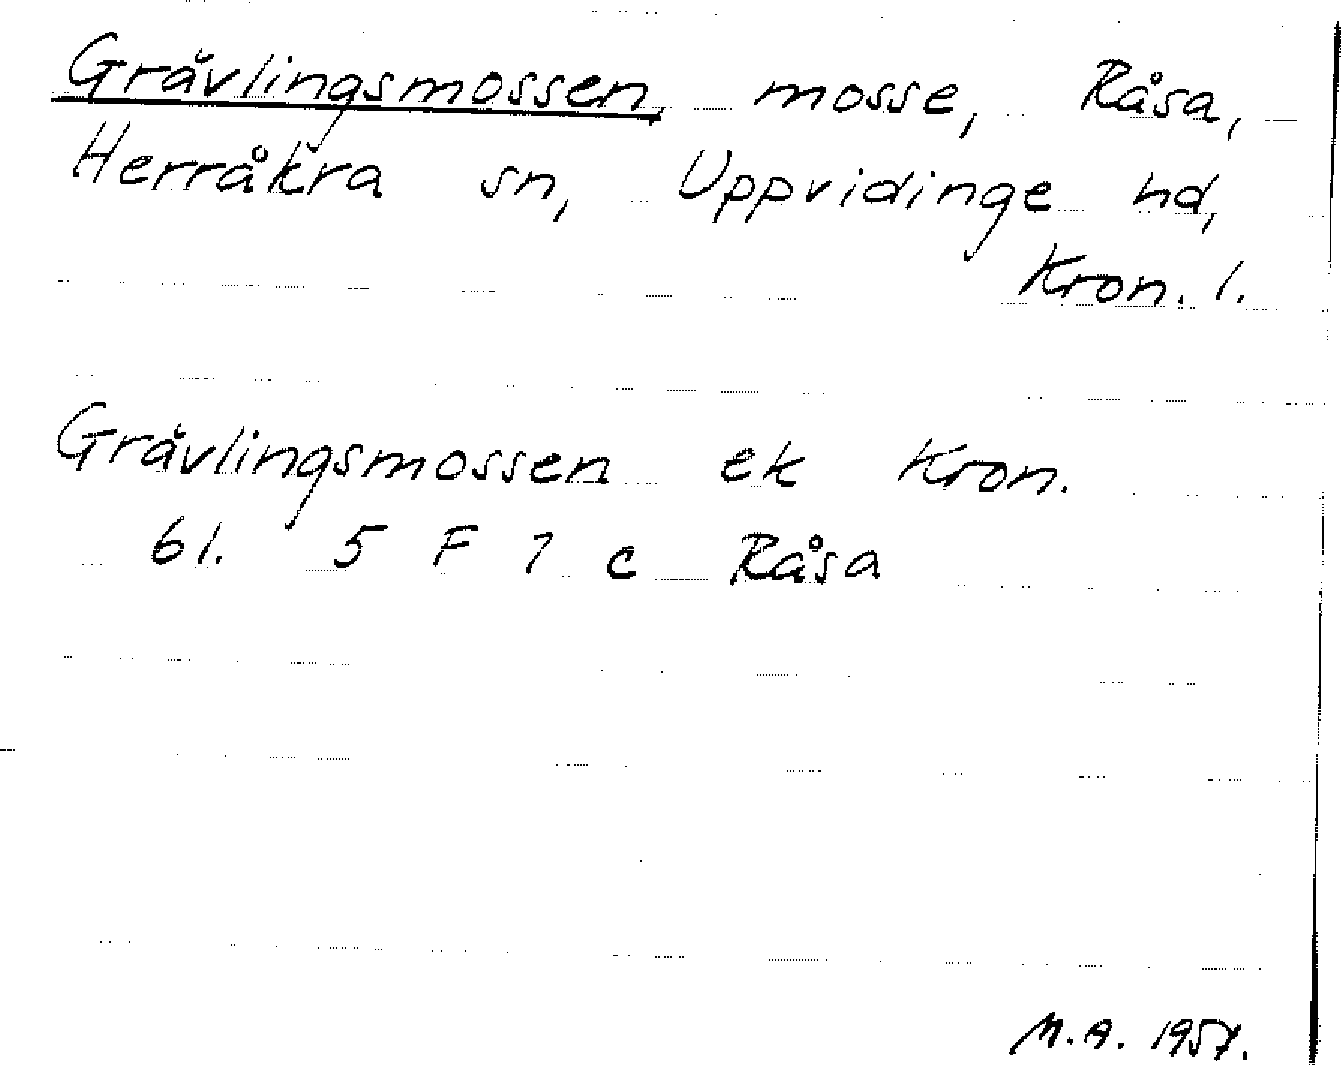 Grävlingsmossen, mosse, Råsa,
Herråkra sn, Uppvidinge hd,
Kron. l.
Grävlingsmossen ek Kron.
61. 5 F 7 c Råsa
M.A. 1957.